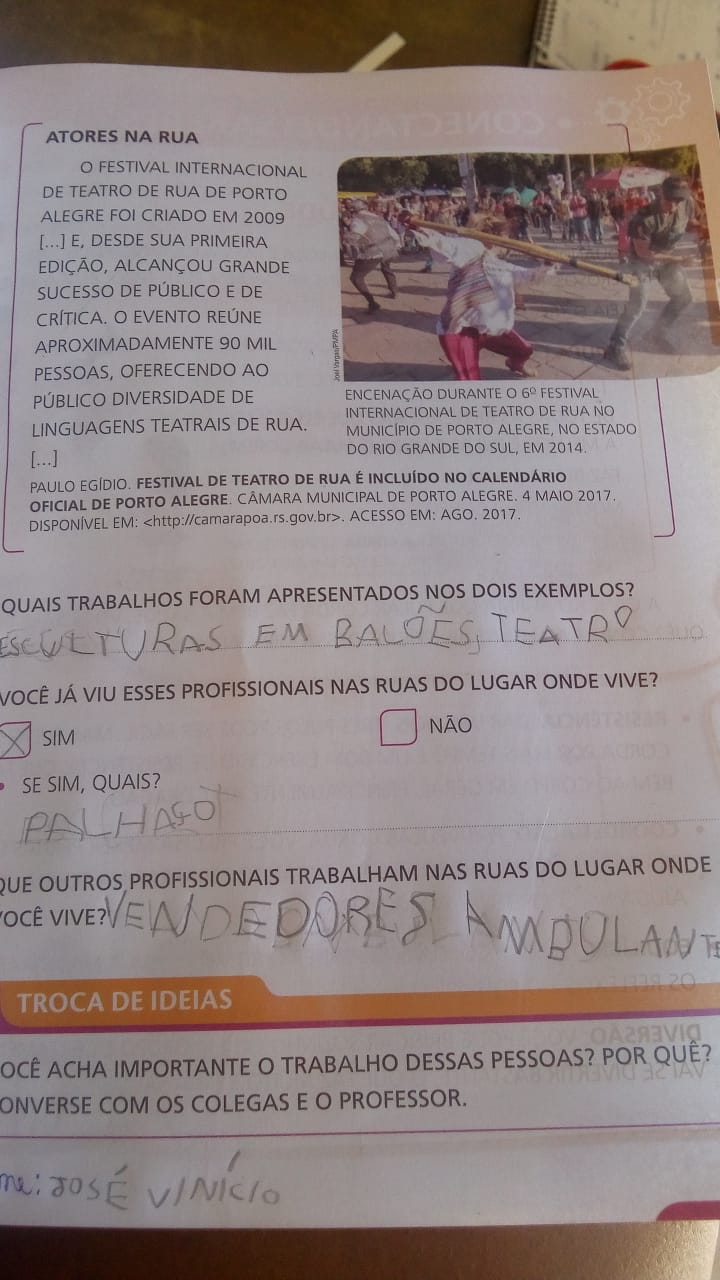 ATORES NA RUA
O FESTIVAL INTERNACIONAL
DE TEATRO DE RUA DE PORTO
ALEGRE FOI CRIADO EM 2009
[...] E, DESDE SUA PRIMEIRA
EDIÇÃO, ALCANÇOU GRANDE
SUCESSO DE PÚBLICO E DE
CRÍTICA. O EVENTO REÚNE
APROXIMADAMENTE 90 MIL
PESSOAS, OFERECENDO AO
PÚBLICO DIVERSIDADE DE
LINGUAGENS TEATRAIS DE RUA.
[...]
Joel Vargas/PMPA
ENCENAÇÃO DURANTE O 6º FESTIVAL
INTERNACIONAL DE TEATRO DE RUA NO
MUNICÍPIO DE PORTO ALEGRE, NO ESTADO
DO RIO GRANDE DO SUL, EM 2014.
PAULO EGÍDIO. FESTIVAL DE TEATRO DE RUA É INCLUÍDO NO CALENDÁRIO
OFICIAL DE PORTO ALEGRE. CÂMARA MUNICIPAL DE PORTO ALEGRE. 4 MAIO 2017.
DISPONÍVEL EM: <http://camarapoa.rs.gov.br>. ACESSO EM: AGO. 2017.
QUAIS TRABALHOS FORAM APRESENTADOS NOS DOIS EXEMPLOS?
ESCULTURAS EM BALÕES, TEATRO
VOCÊ JÁ VIU ESSES PROFISSIONAIS NAS RUAS DO LUGAR ONDE VIVE?
SIM NÃO
• SE SIM, QUAIS?
PALHAÇO
QUE OUTROS PROFISSIONAIS TRABALHAM NAS RUAS DO LUGAR ONDE
VOCÊ VIVE? VENDEDORES AMBULANTE
TROCA DE IDEIAS
OCÊ ACHA IMPORTANTE O TRABALHO DESSAS PESSOAS? POR QUÊ?
ONVERSE COM OS COLEGAS E O PROFESSOR.
me: JOSÉ VINÍCIO